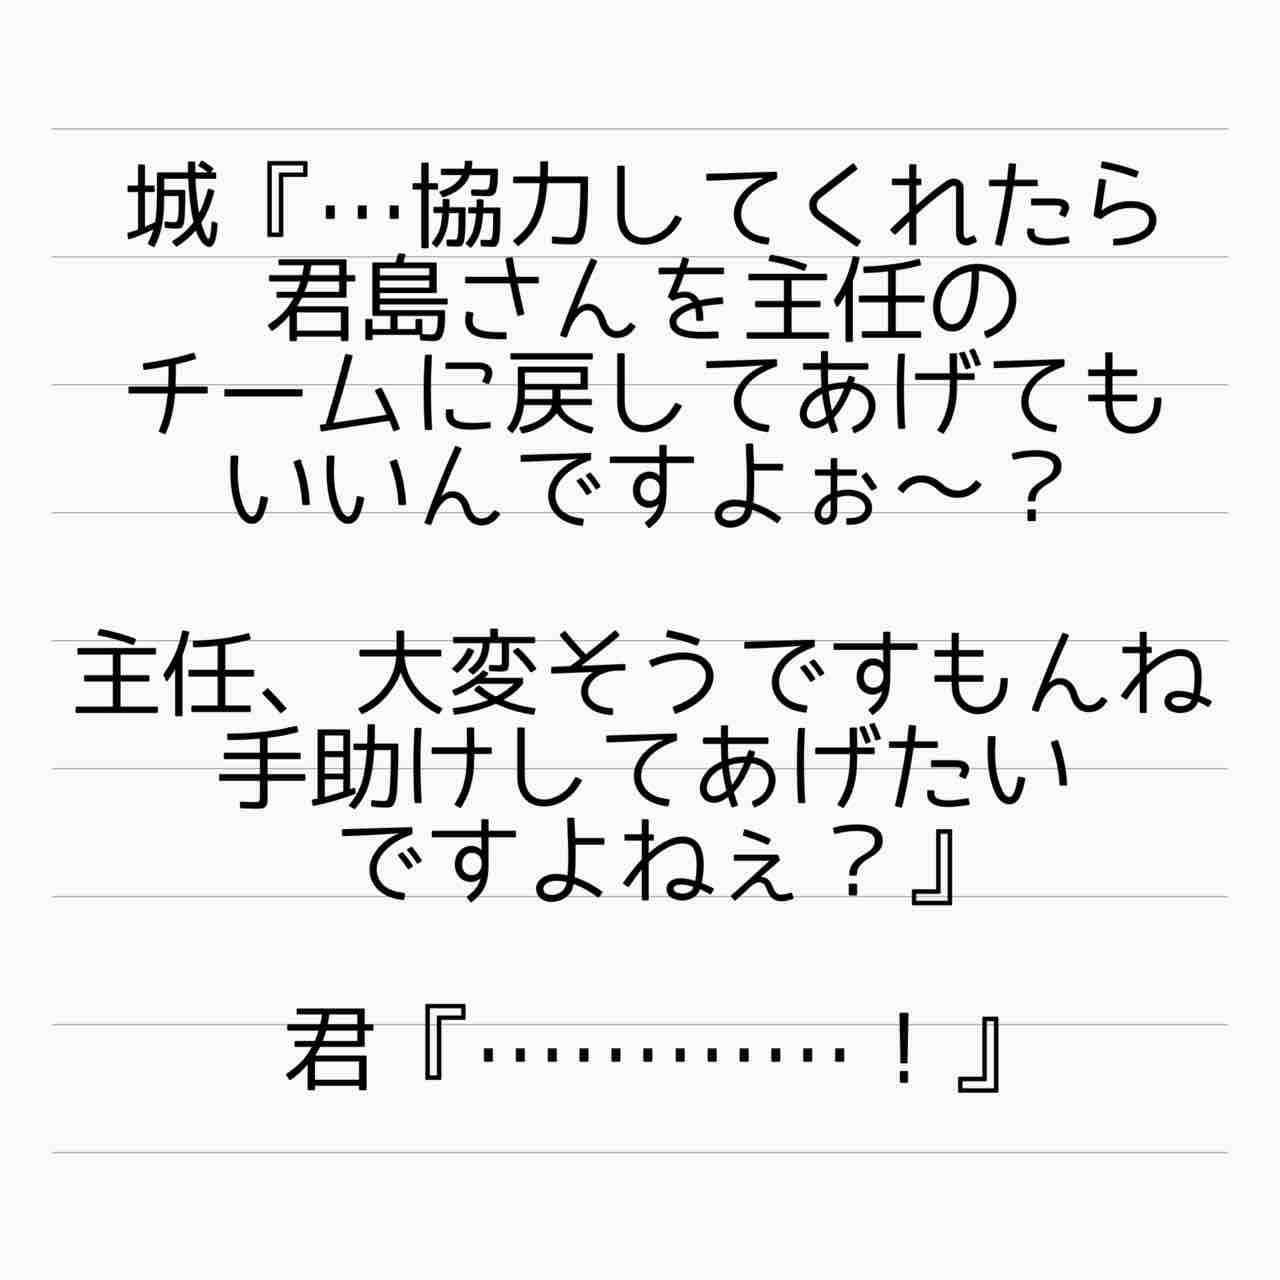 城『…協力してくれたら
君島さんを主任の
チームに戻してあげても
いいんですよぉ〜？
主任、大変そうですもんね
手助けしてあげたい
ですよねぇ？』
君『…………！』